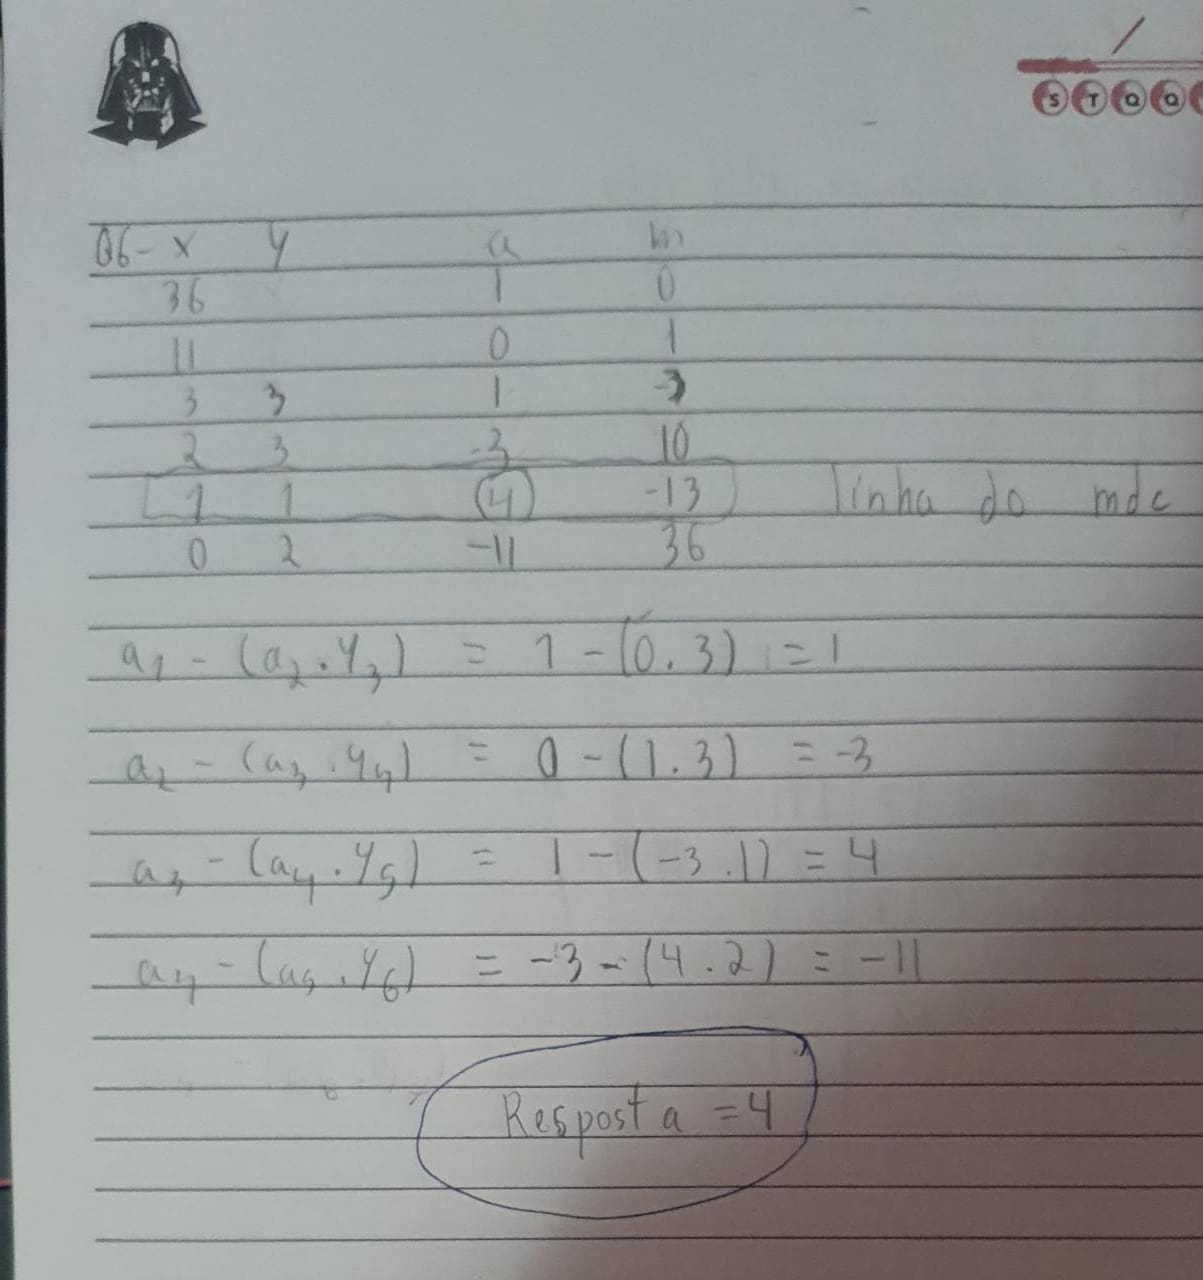 S T Q Q
06- x y a m
36 1 0
11 0 1
3 3 1 -3
2 3 -3 10
1 1 4 -13 linha do mdc
0 2 -11 36
a₁ - (a₂ . y₃) = 1 - (0 . 3) = 1
a₂ - (a₃ . y₄) = 0 - (1 . 3) = -3
a₃ - (a₄ . y₅) = 1 - (-3 . 1) = 4
a₄ - (a₅ . y₆) = -3 - (4 . 2) = -11
Resposta = 4